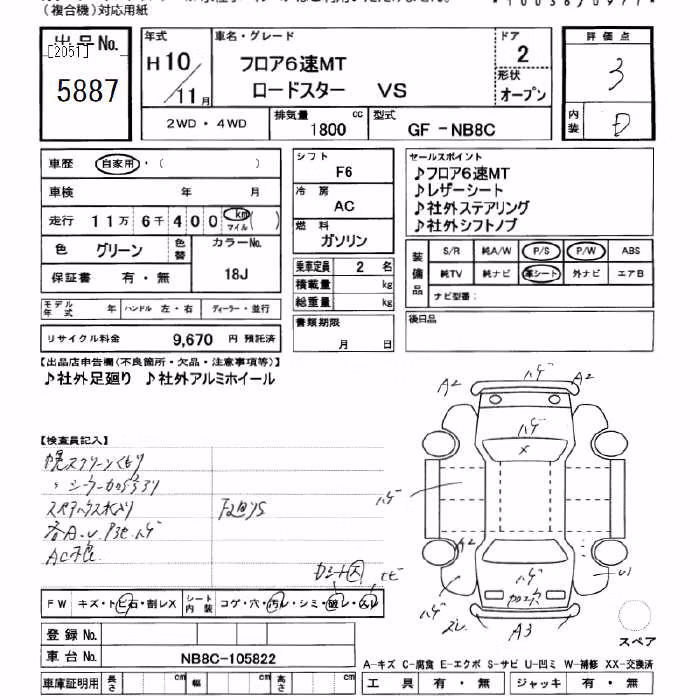 (複合機)対応用紙
出品No.
[2051]
5887
年式
H10/11月
車名・グレード
フロア6速MT
ロードスター VS
ドア
2
形状
オープン
評価点
3
内装
D
2WD・4WD
排気量
1800 cc
型式
GF-NB8C
車歴 自家用・( )
車検 年 月
走行 11万 6千 400 km マイル ( )
色 グリーン 色替 カラーNo.
18J
保証書 有・無
モデル年式 年 ハンドル 左・右 ディーラー・並行
リサイクル料金 9,670 円 預託済
シフト
F6
冷房
AC
燃料
ガソリン
乗車定員 2 名
積載量 kg
総重量 kg
書類期限
月 日
セールスポイント
♪フロア6速MT
♪レザーシート
♪社外ステアリング
♪社外シフトノブ
装備品
S/R 純A/W P/S P/W ABS
純TV 純ナビ 革シート 外ナビ エアB
ナビ型番:
後日品
【出品店申告欄(不良箇所・欠品・注意事項等)】
♪社外足廻り ♪社外アルミホイール
【検査員記入】
幌スクリーンくもり
AC不良
A2 ハゲ A2
ハゲ
X
ハゲ
A2
ハゲ
U1
ハゲ
A3
FW キズ・トビ石・割レX シート内装 コゲ・穴・汚レ・シミ・破レ・スレ
登録No.
車台No. NB8C-105822
車庫証明用 長さ cm 幅 cm 高さ cm
スペア
A-キズ C-腐食 E-エクボ S-サビ U-凹ミ W-補修 XX-交換済
工具 有・無 ジャッキ 有・無